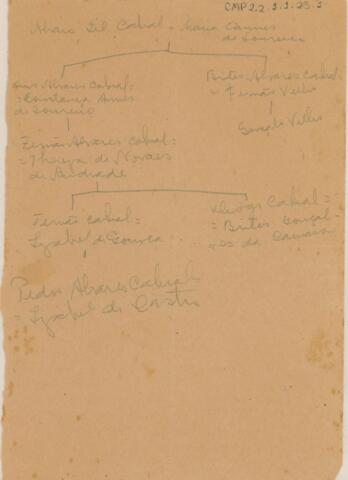 CMP 2.2.1.1-25-2
Alvaro Gil Cabral = Maria Eannes
de Loureiro
Luis Alvares Cabral =
= Constança Annes
de Loureiro
Brites Alvares Cabral
= Fernão Velho
Gonçalo Velho
Fernão Alvares Cabral =
= Thereza de Novaes
de Andrade
Fernão Cabral =
Izabel de Gouvea
Diogo Cabral =
= Brites Gonçal-
ves da Camara
Pedro Alvares Cabral
= Izabel de Castro